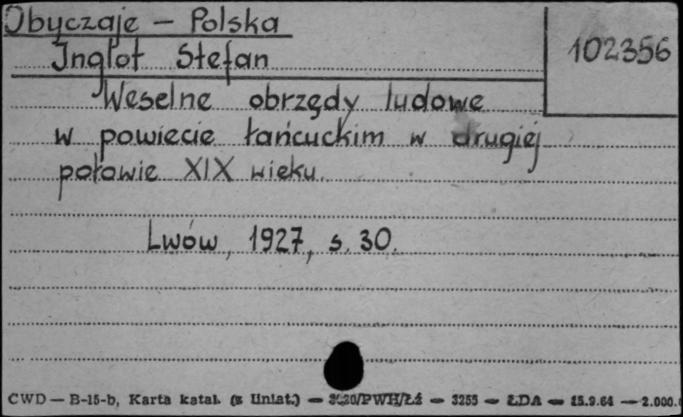 Obyczaje — Polska
102356
Inglot Stefan
Weselne obrzędy ludowe
w powiecie łańcuckim w drugiej
połowie XIX wieku.
Lwów, 1927, s. 30.
CWD — B-15-b, Karta katal. (z liniat.) — PWH/Łź — 3255 — ŁDA — 15.9.64 — 2.000.